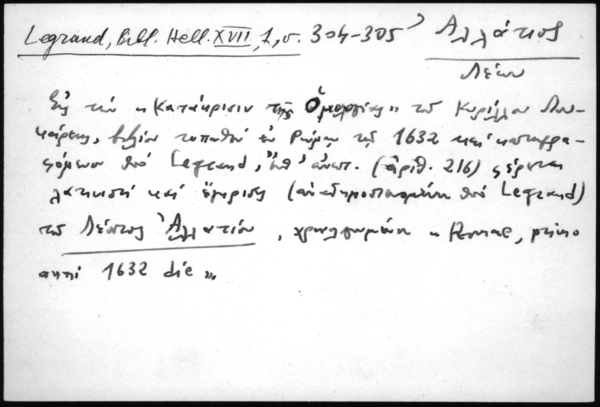 Legrand, Bibl. Hell. XVII, 1, σ. 304-305
Ἀλλάτιος
Λέων
Εἰς τὴν «Κατάκρισιν τῆς Ὁμολογίας» τοῦ Κυρίλλου Λου-
κάρεως, βιβλίον τυπωθὲν ἐν Ρώμῃ τῷ 1632 καὶ καταγρα-
φόμενον ὑπὸ Legrand, ἔνθ' ἀνωτ. (ἀριθ. 216) φέρεται
λατινιστὶ καὶ ἔγκρισις (ἀναδημοσιευμένη ὑπὸ Legrand)
τοῦ Λέοντος Ἀλλατίου, χρονολογημένη «Romae, primo
anni 1632 die».